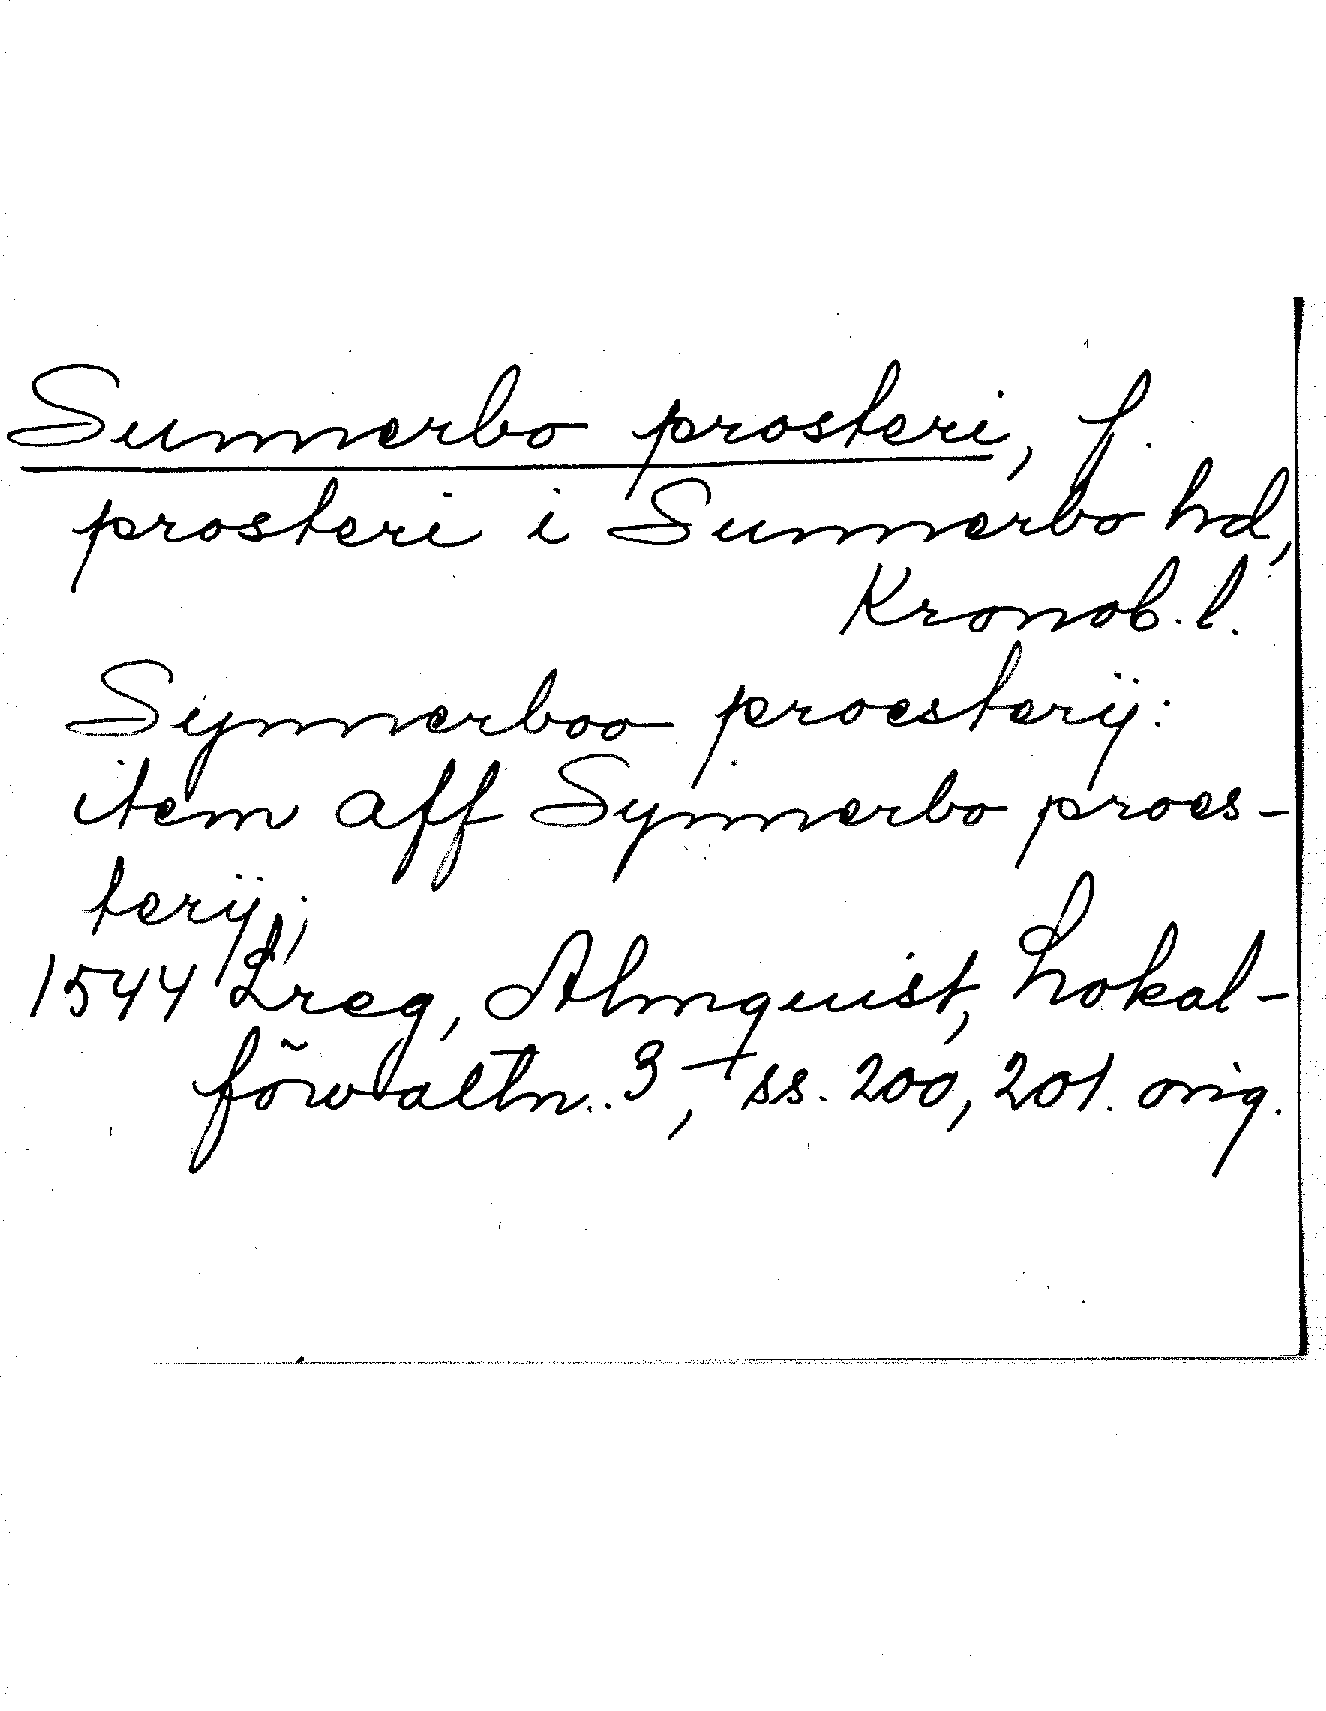 Sunnerbo prosteri, f.
prosteri i Sunnerbo hd,
Kronob. l.
Synnerboo proesterÿ:
item aff Synnerbo proes-
terÿ;
1544 Lreg, Almquist, Lokal-
förvaltn. 3, ss. 200, 201. orig.